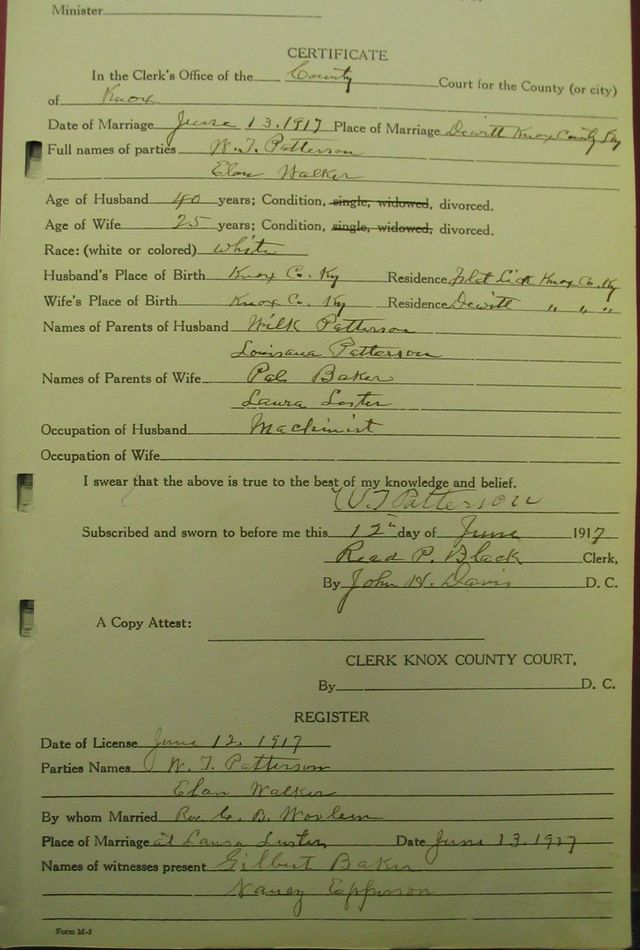 Minister
CERTIFICATE
In the Clerk's Office of the County Court for the County (or city)
of Knox
Date of Marriage June 13, 1917 Place of Marriage Dewitt Knox County Ky
Full names of parties W. T. Patterson
Elan Walker
Age of Husband 40 years; Condition, single, widowed, divorced.
Age of Wife 25 years; Condition, single, widowed, divorced.
Race: (white or colored) white
Husband's Place of Birth Knox Co. Ky Residence Flat Lick Knox Co. Ky
Wife's Place of Birth Knox Co. Ky Residence Dewitt " " "
Names of Parents of Husband Wilk Patterson
Louisana Patterson
Names of Parents of Wife Pal Baker
Laura
Occupation of Husband Machinist
Occupation of Wife
I swear that the above is true to the best of my knowledge and belief.
W T Patterson
Subscribed and sworn to before me this 12th day of June 1917
Read P. Black Clerk,
By John H. Davis D. C.
A Copy Attest:
CLERK KNOX COUNTY COURT,
By D. C.
REGISTER
Date of License June 12, 1917
Parties Names W. T. Patterson
Elan Walker
By whom Married Rev.
Place of Marriage at Laura Date June 13, 1917
Names of witnesses present Gilbert Baker
Nancy Epperson
Form M-3